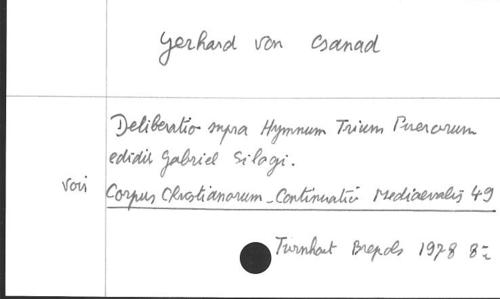 Gerhard von Csanad
Deliberatio supra Hymnum Trium Puerorum
edidit Gabriel Silagi.
voir Corpus Christianorum - Continuatio Mediaevalis 49
Turnhout Brepols 1978 8º